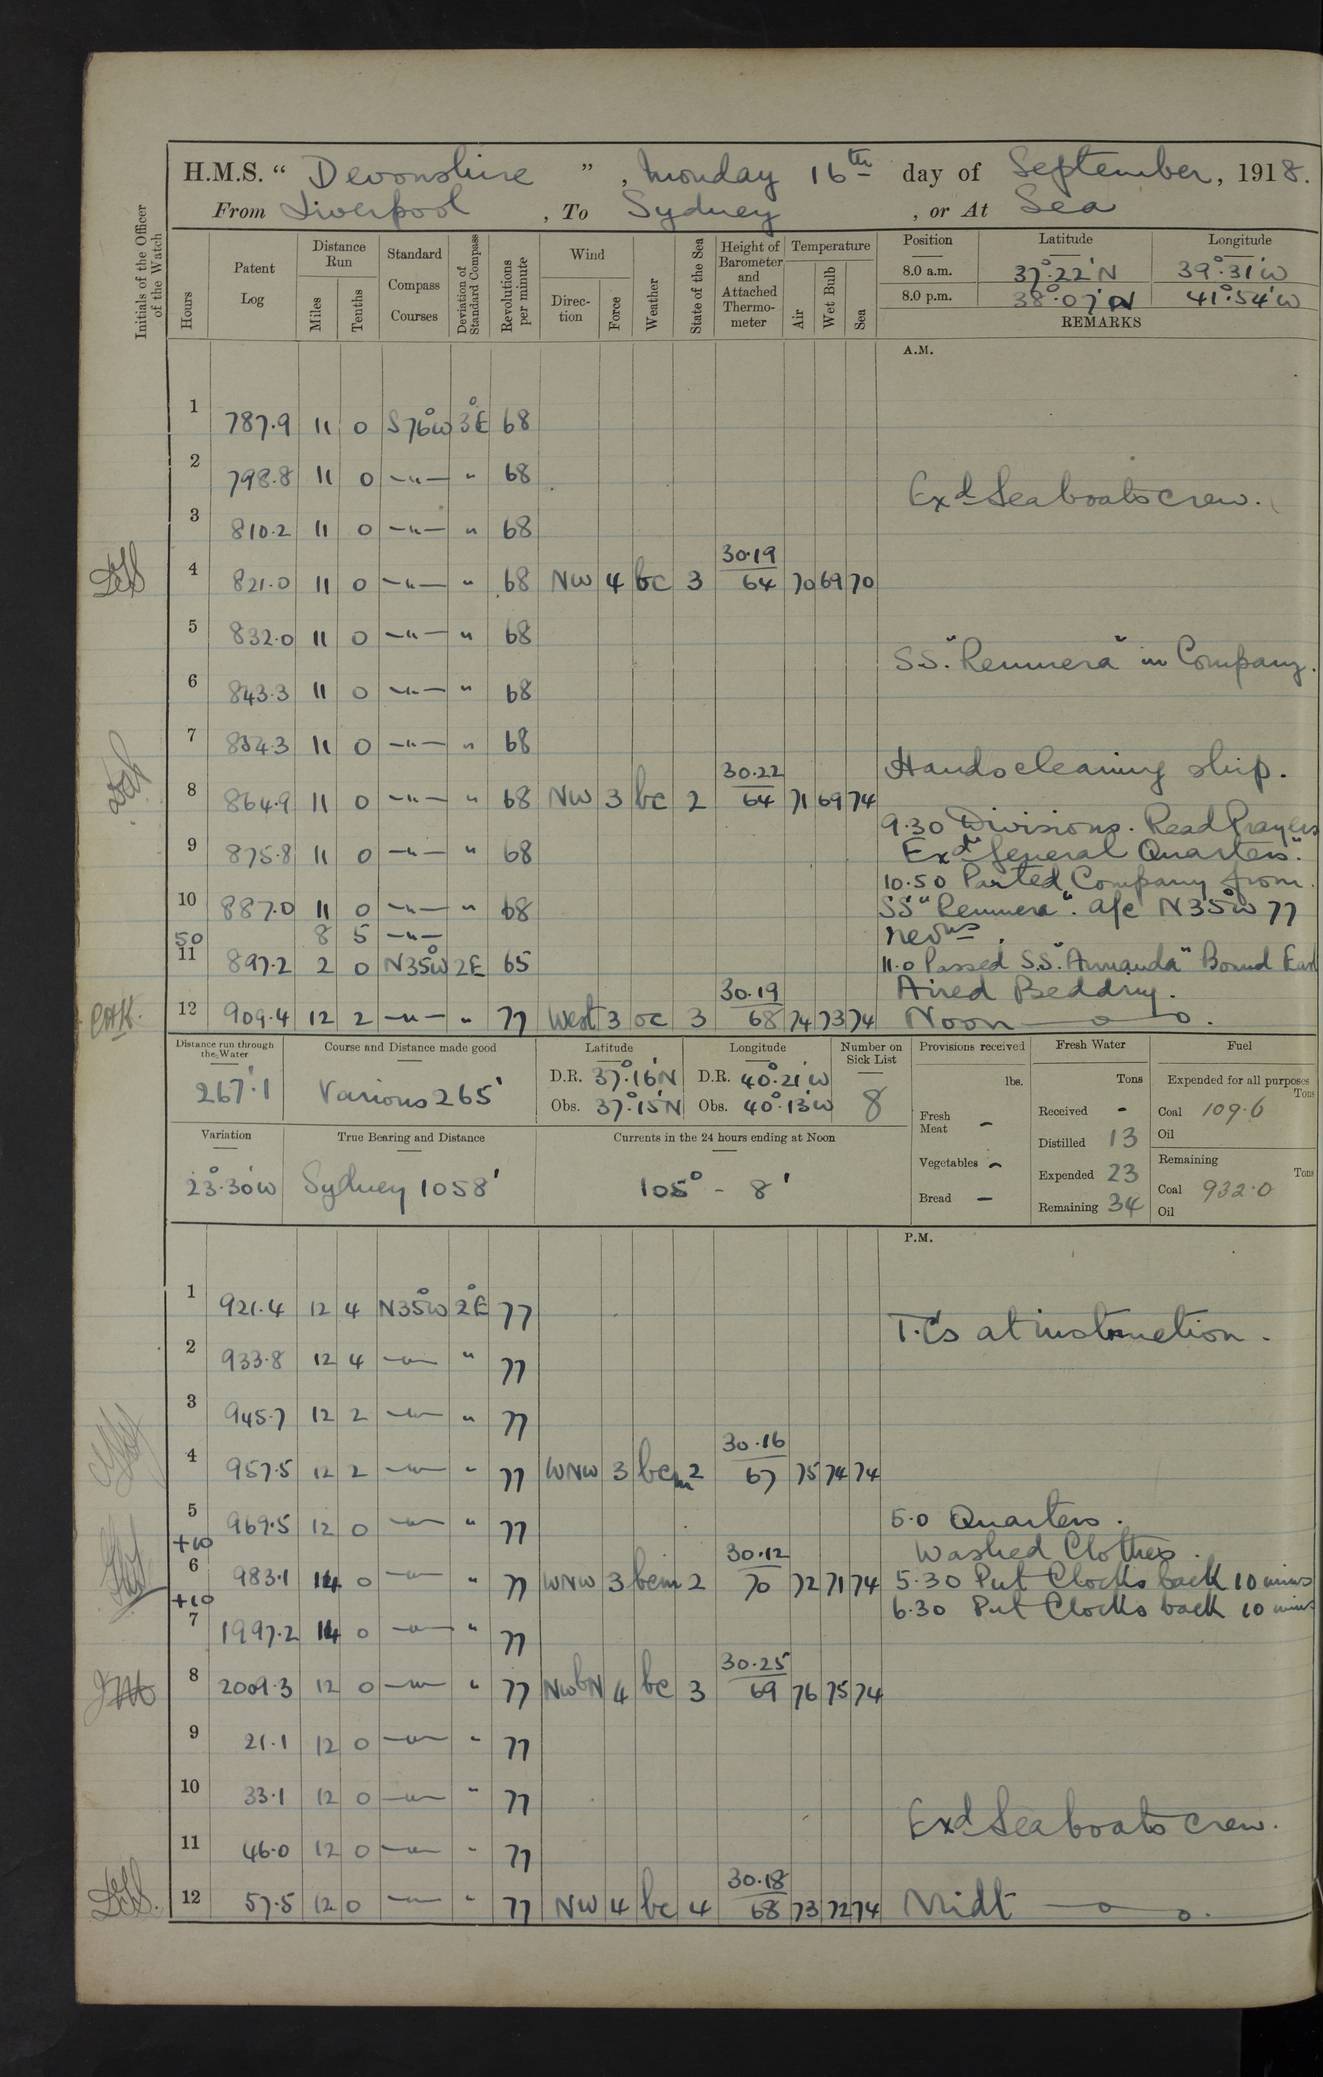 H.M.S. “ Devonshire ” , Monday 16th day of September, 1918.
From Liverpool , To Sydney , or At Sea
Initials of the Officer of the Watch
Hours
Patent Log
Distance Run
Miles
Tenths
Standard Compass Courses
Deviation of Standard Compass
Revolutions per minute
Wind
Direc-tion
Force
Weather
State of the Sea
Height of Barometer and Attached Thermo-meter
Temperature
Air
Wet Bulb
Sea
Position Latitude Longitude
8.0 a.m. 37°.22'N 39°.31'W
8.0 p.m. 38°.07'N 41°.54'W
REMARKS
A.M.
1 787.9 11 0 S76°W 3°E 68
2 798.8 11 0 —"— " 68
Exd Seaboats crew.
3 810.2 11 0 —"— " 68
30.19
4 821.0 11 0 —"— " 68 NW 4 bc 3 64 70 69 70
5 832.0 11 0 —"— " 68
S.S. "Remuera" in Company.
6 843.3 11 0 —"— " 68
7 854.3 11 0 —"— " 68
Hands cleaning ship.
30.22
8 864.9 11 0 —"— " 68 NW 3 bc 2 64 71 69 74
9.30 Divisions. Read Prayers
9 875.8 11 0 —"— " 68
Exd "General Quarters".
10.50 Parted Company from
10 887.0 11 0 —"— " 68
SS "Remuera". a/c N35°W 77
50 8 5 —"—
revns.
11 897.2 2 0 N35°W 2E 65
11.0 Passed S.S. "Armanda" Bound East
Aired Bedding.
30.19
12 909.4 12 2 —"— " 77 West 3 oc 3 68 74 73 74 Noon
Distance run through the Water
267'.1
Course and Distance made good
Various 265'
Latitude
D.R. 37°.16'N
Obs. 37°.15'N
Longitude
D.R. 40°.21'W
Obs. 40°.13'W
Number on Sick List
8
Provisions received
lbs.
Fresh Meat -
Vegetables -
Bread -
Fresh Water
Tons
Received -
Distilled 13
Expended 23
Remaining 34
Fuel
Expended for all purposes
Tons
Coal 109.6
Oil
Remaining
Tons
Coal 932.0
Oil
Variation
23°.30'W
True Bearing and Distance
Sydney 1058'
Currents in the 24 hours ending at Noon
105° - 8'
P.M.
1 921.4 12 4 N35°W 2°E 77
T.C's at instruction.
2 933.8 12 4 —"— " 77
3 945.7 12 2 —"— " 77
30.16
4 957.5 12 2 —"— " 77 WNW 3 bcm 2 67 75 74 74
5 969.5 12 0 —"— " 77
5.0 Quarters.
+10
Washed Clothes.
30.12
6 983.1 14 0 —"— " 77 WNW 3 bcm 2 70 72 71 74
5.30 Put Clocks back 10 mins
+10
6.30 Put Clocks back 10 mins
7 1997.2 14 0 —"— " 77
30.25
8 2009.3 12 0 —"— " 77 NWbN 4 bc 3 69 76 75 74
9 21.1 12 0 —"— " 77
10 33.1 12 0 —"— " 77
Exd Seaboats Crew.
11 46.0 12 0 —"— " 77
30.18
12 57.5 12 0 —"— " 77 NW 4 bc 4 68 73 72 74 Midt